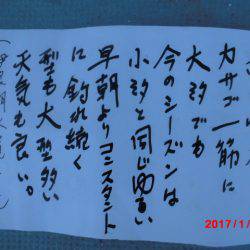 カサゴ一筋に
大汐でも
今のシーズンは
小汐と同じ位い
早朝よりコンスタント
に釣れ続く
型も大型多い
天気も良い。
2017/1/